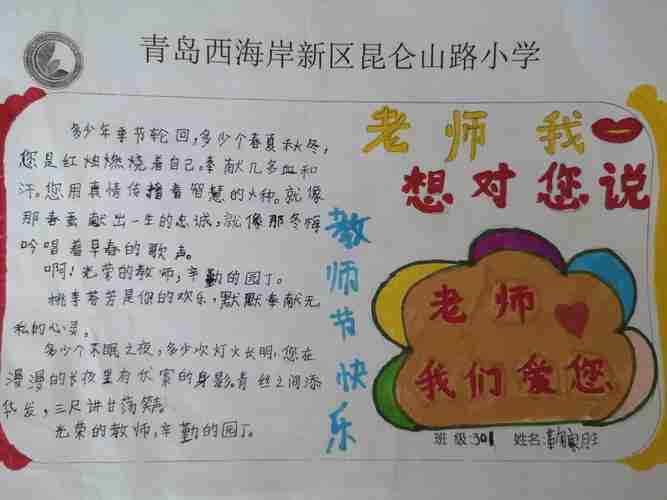 青岛西海岸新区昆仑山路小学
多少年季节轮回,多少个春夏秋冬,
您是红烛燃烧着自己,奉献几多血和
汗。您用真情传播着智慧的火种。就像
那春蚕献出一生的忠诚,就像那冬梅
吟唱着早春的歌声。
啊!光荣的教师,辛勤的园丁。
桃李芬芳是你的欢乐,默默奉献无
私的心灵。
多少个不眠之夜,多少次灯火长明,您在
漫漫的长夜里有伏案的身影。青丝之间添
华发,三尺讲台荡笑声
光荣的教师,辛勤的园丁。
教师节快乐
老师我
想对您说
老师
我们爱您
班级:301 姓名: